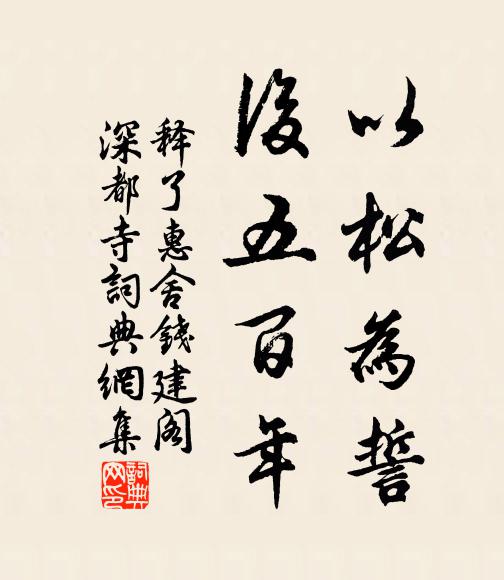 以松為誓
後五百年
釋了惠舍錢建閣
深都寺詞典網集
詞典
网印